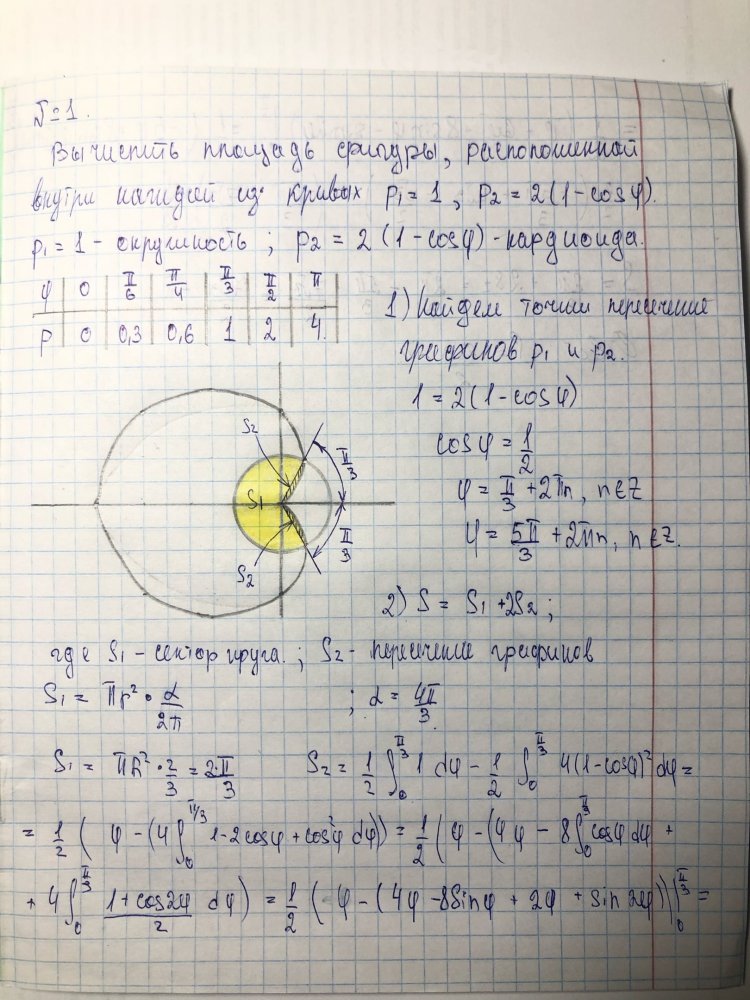 №1.
Вычислить площадь фигуры, расположенной
внутри каждой из кривых ρ₁ = 1, ρ₂ = 2(1-cosφ).
ρ₁ = 1 - окружность; ρ₂ = 2(1-cosφ) - кардиоида.
φ | 0 | π/6 | π/4 | π/3 | π/2 | π
ρ | 0 | 0,3 | 0,6 | 1 | 2 | 4.
1) Найдем точки пересечения
графиков ρ₁ и ρ₂.
1 = 2(1-cosφ)
cosφ = 1/2
φ = π/3 + 2πn, n∈Z
φ = 5π/3 + 2πn, n∈Z.
S₂
π/3
S₁
π/3
S₂
2) S = S₁ + 2S₂;
где S₁ - сектор круга.; S₂ - пересечение графиков
S₁ = πr² · α/2π ; α = 4π/3
S₁ = πR² · 2/3 = 2·π/3 S₂ = 1/2 ∫₀^(π/3) 1 dφ - 1/2 ∫₀^(π/3) 4(1-cosφ)² dφ =
= 1/2 ( φ - (4∫₀^(π/3) 1-2cosφ + cos²φ dφ)) = 1/2 (φ - (4φ - 8∫₀^(π/3) cosφ dφ +
+ 4∫₀^(π/3) (1+cos2φ)/2 dφ) = 1/2 ( φ - (4φ - 8sinφ + 2φ + sin2φ))|₀^(π/3) =